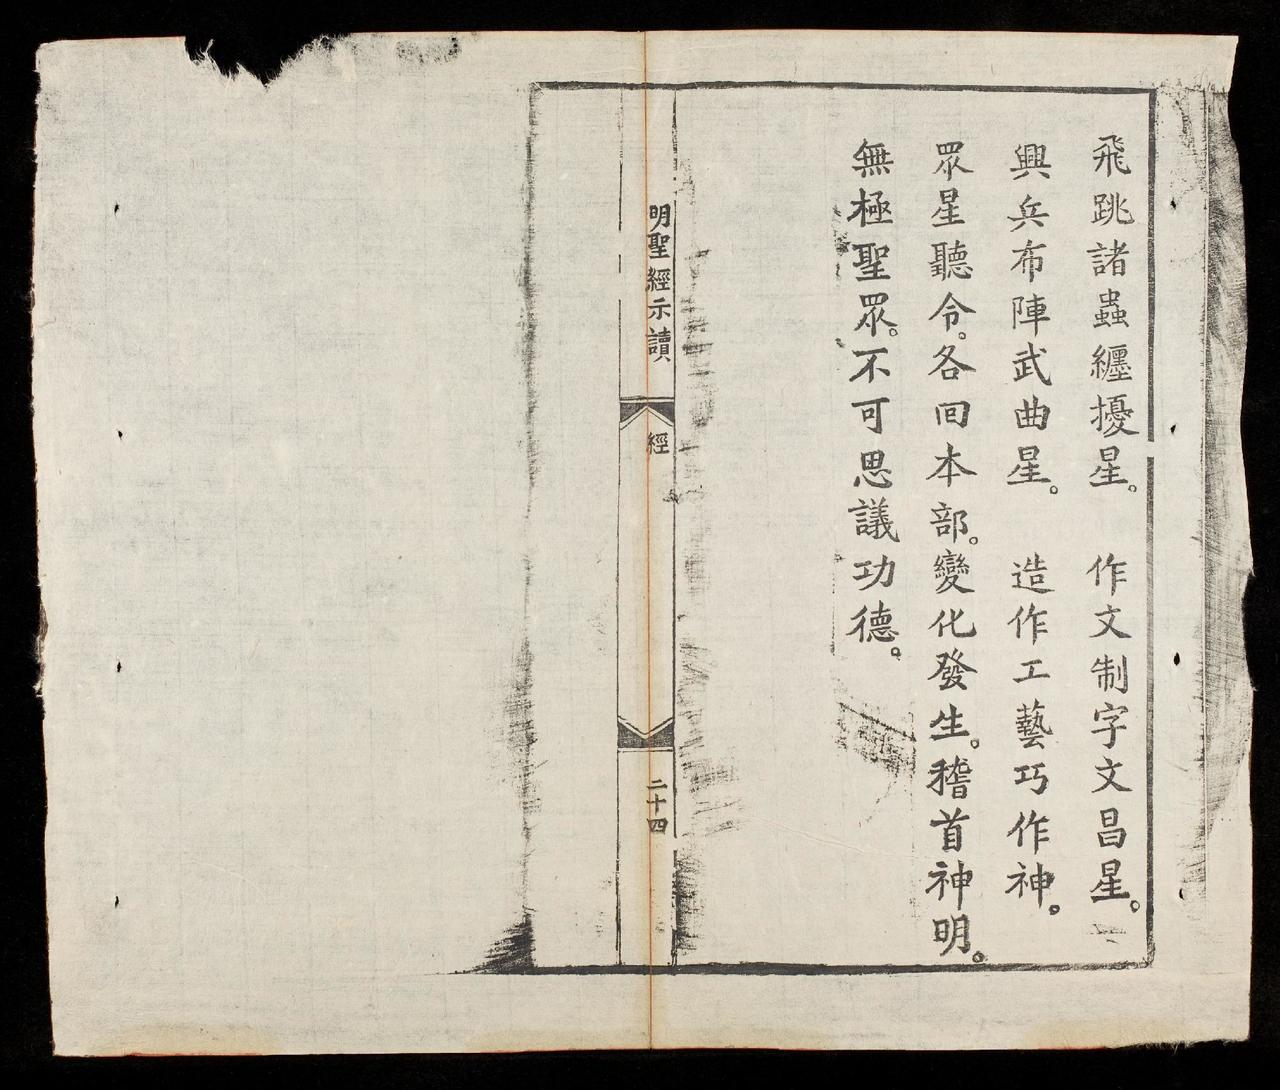 飛跳諸蟲纏擾星。 作文制字文昌星。
興兵布陣武曲星。 造作工藝巧作神。
眾星聽令。各回本部。變化發生。稽首神明。
無極聖眾。不可思議功德。
明聖經示讀 經 二十四